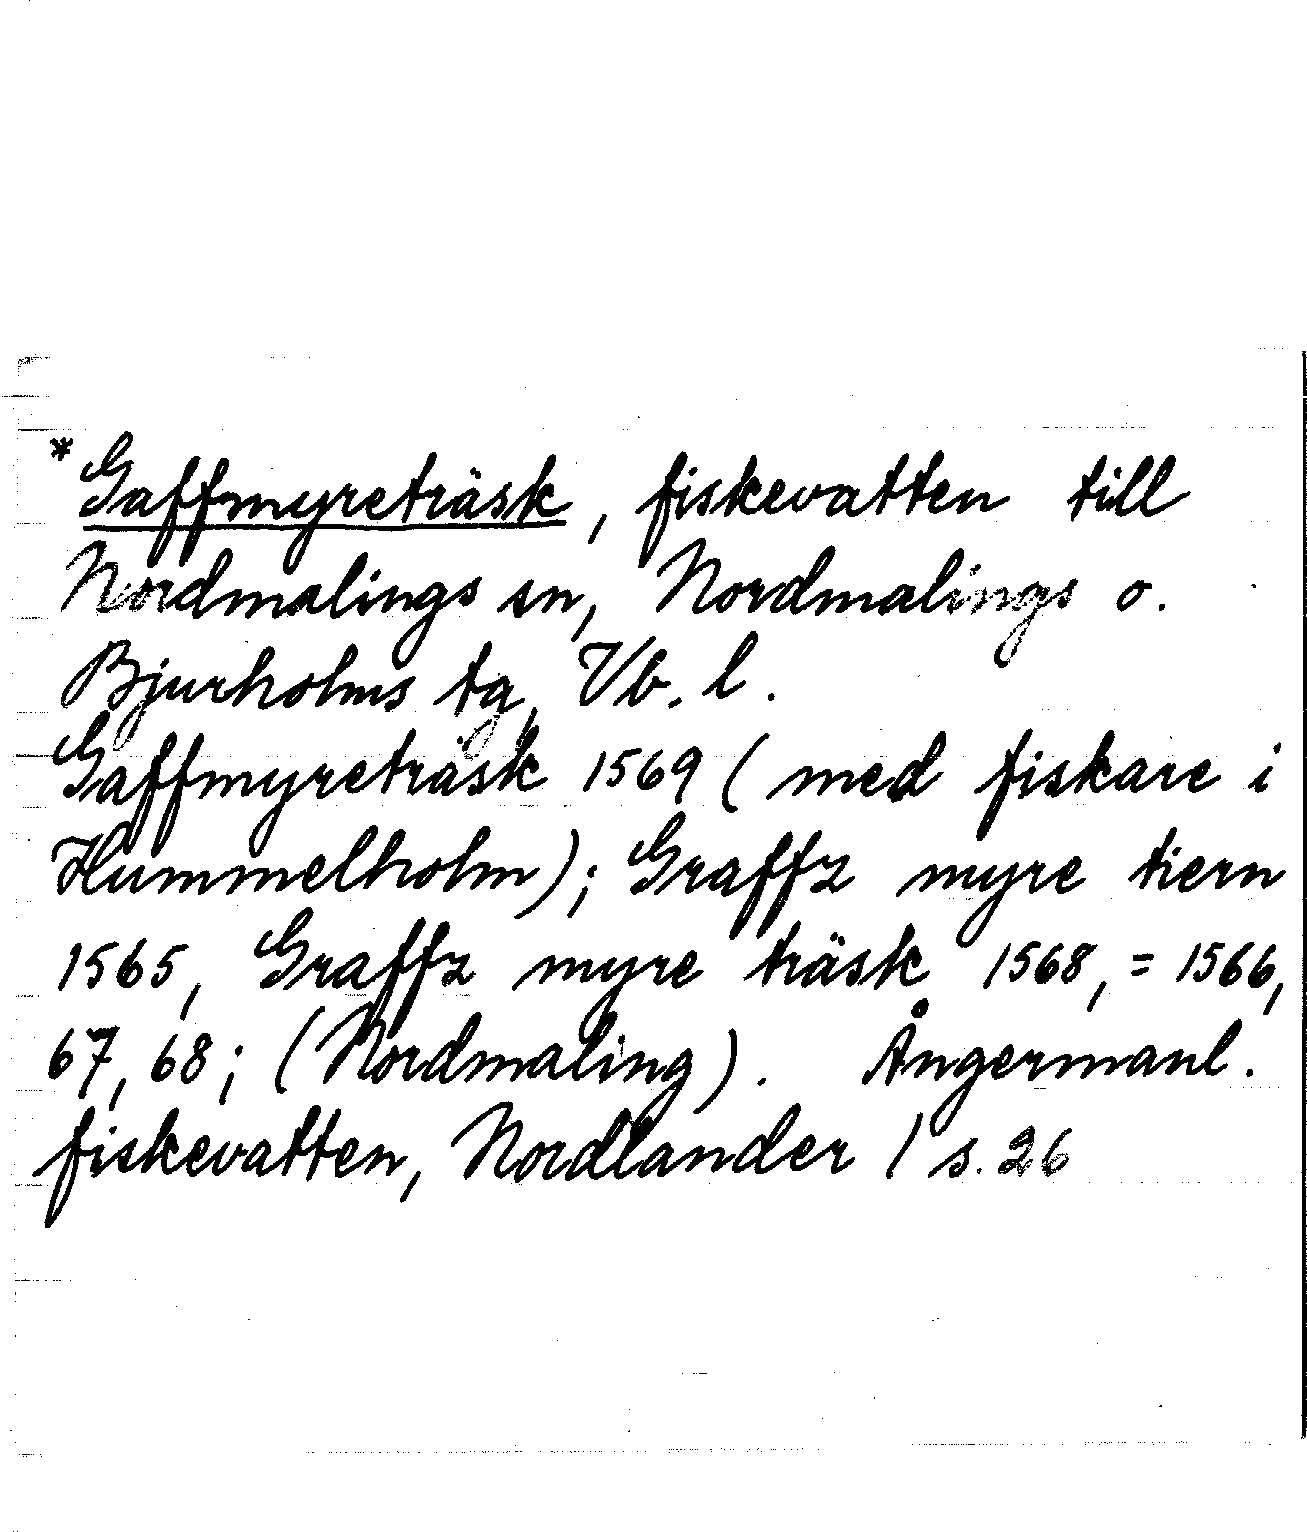 *Gaffmyreträsk, fiskevatten till
Nordmalings sn, Nordmalings o.
Bjurholms tg, Vb. l.
Gaffmyreträsk 1569 (med fiskare i
Hummelholm); Graffz myre tiern
1565, Graffz myre träsk 1568, = 1566,
67, 68; (Nordmaling). Ångermanl.
fiskevatten, Nordlander 1 s. 26